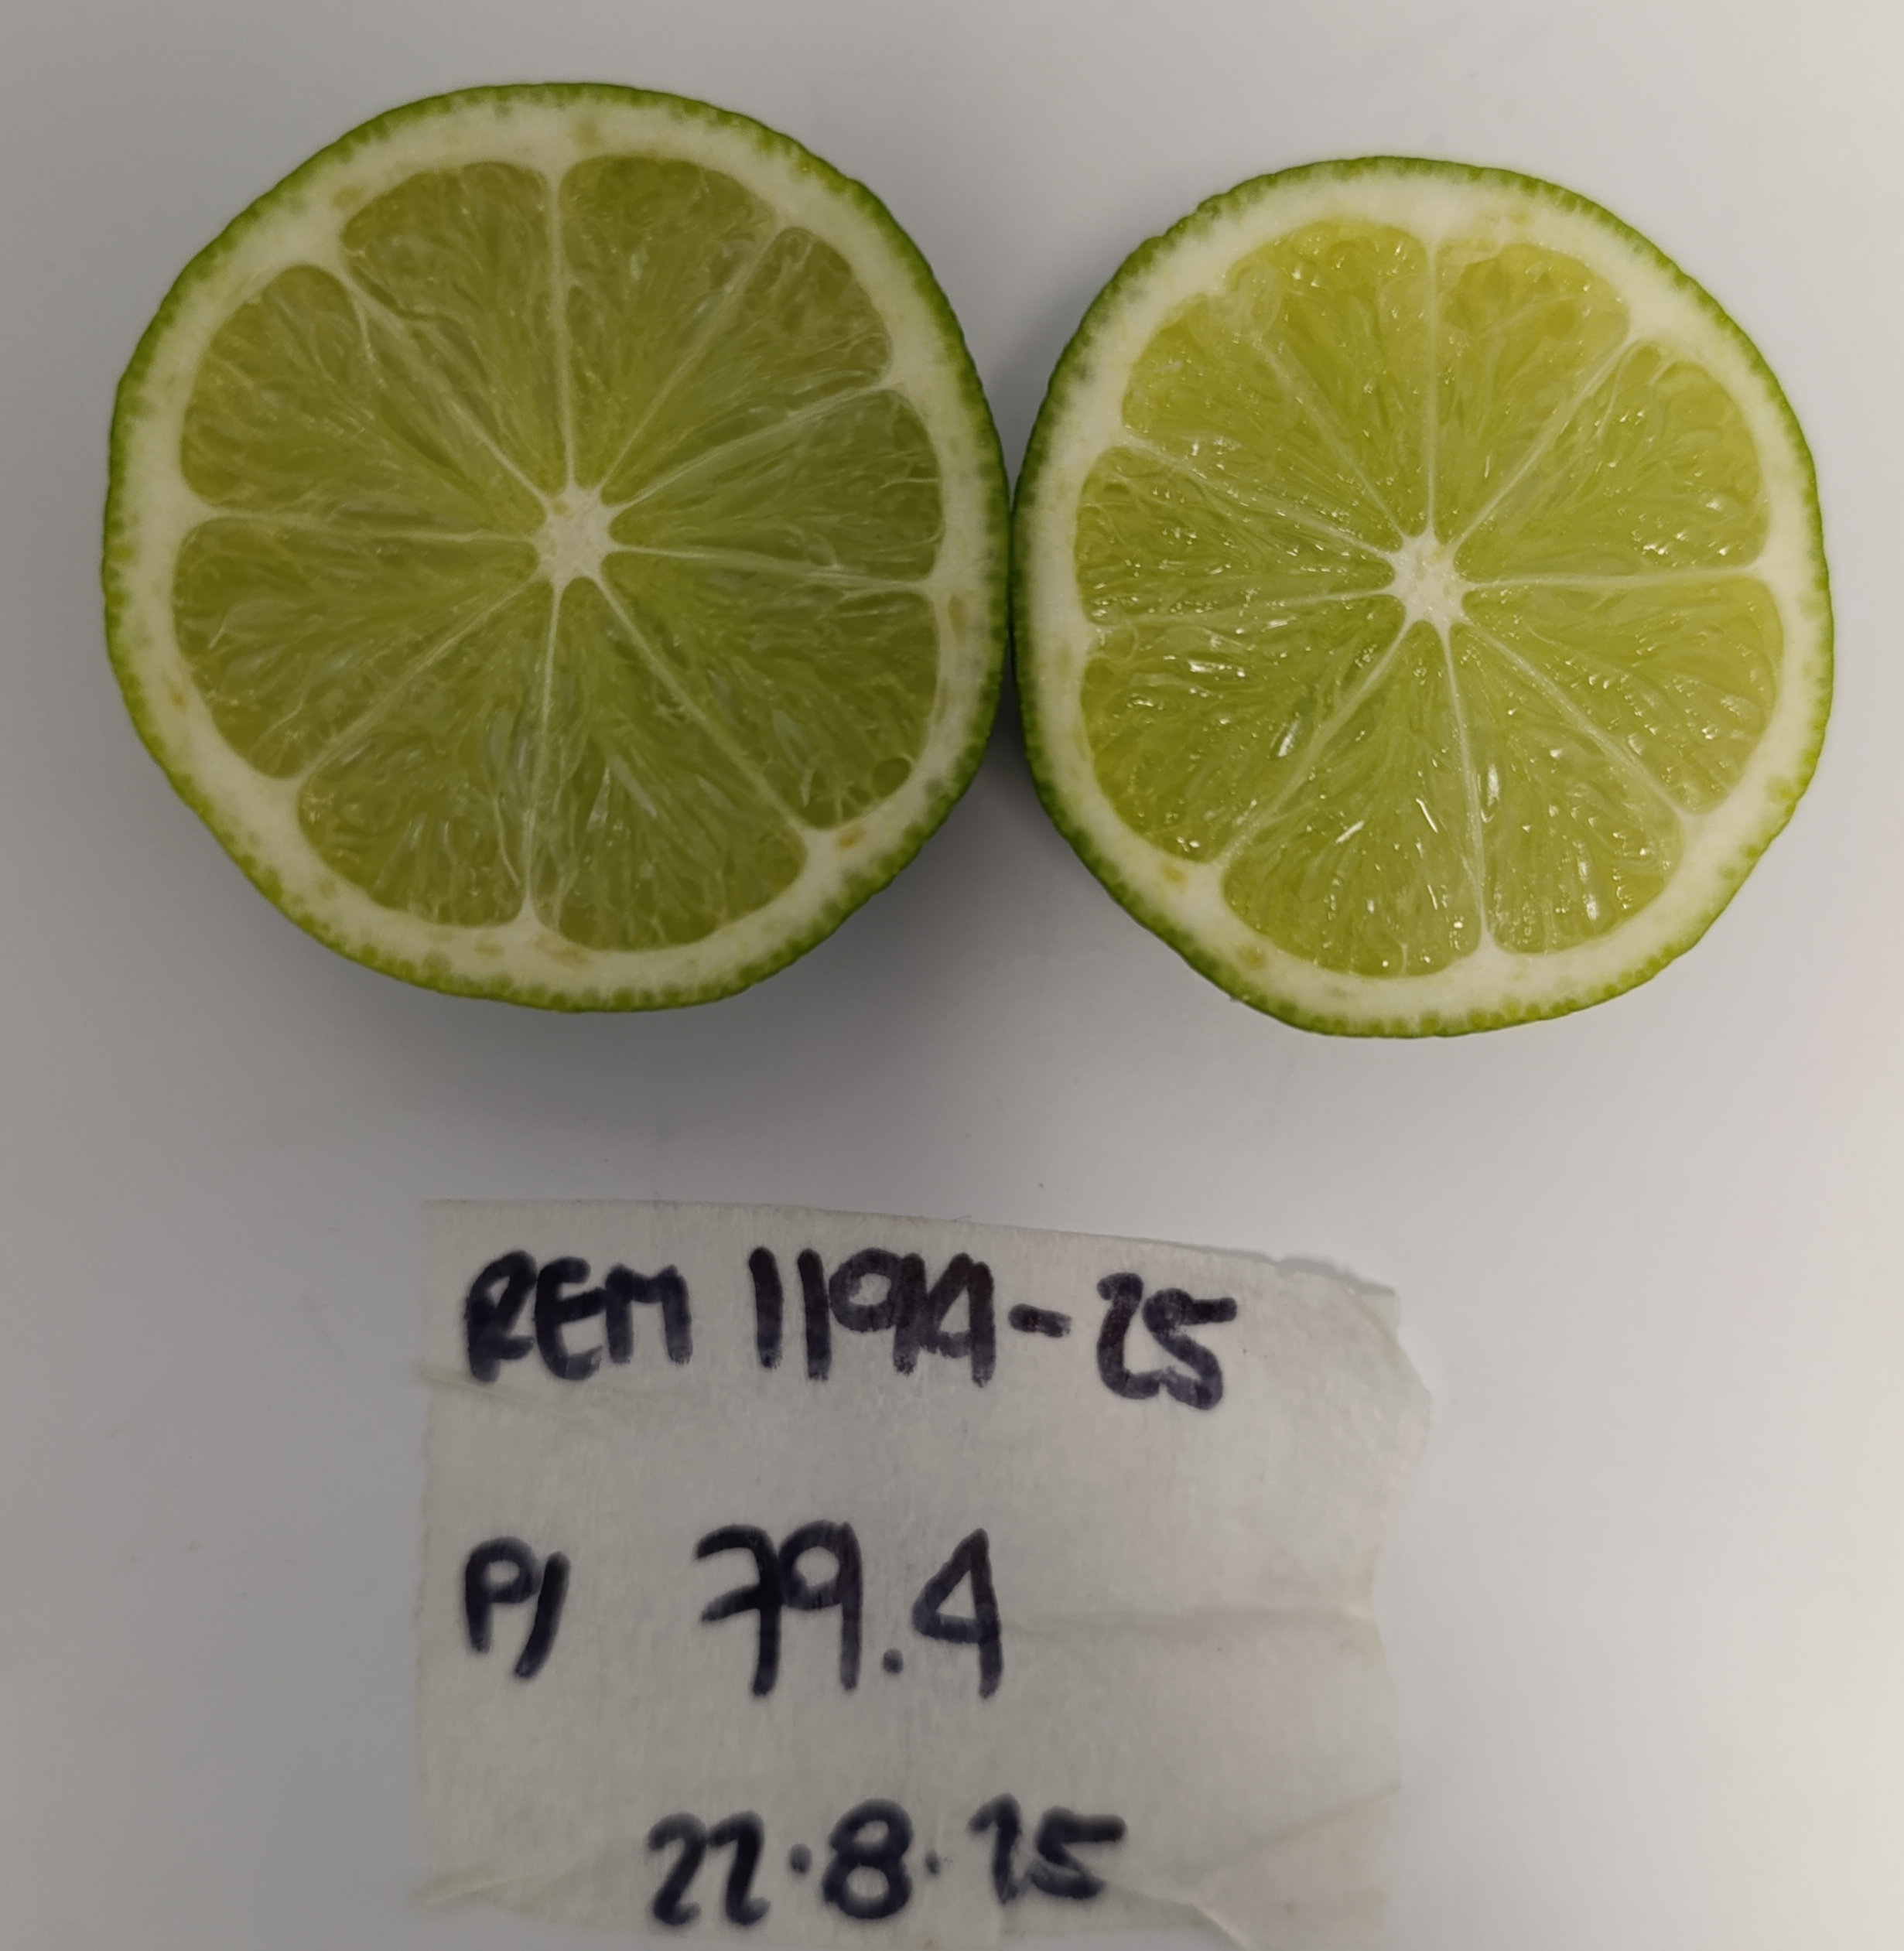 REM 1194-25
P) 79.4
22.8.25